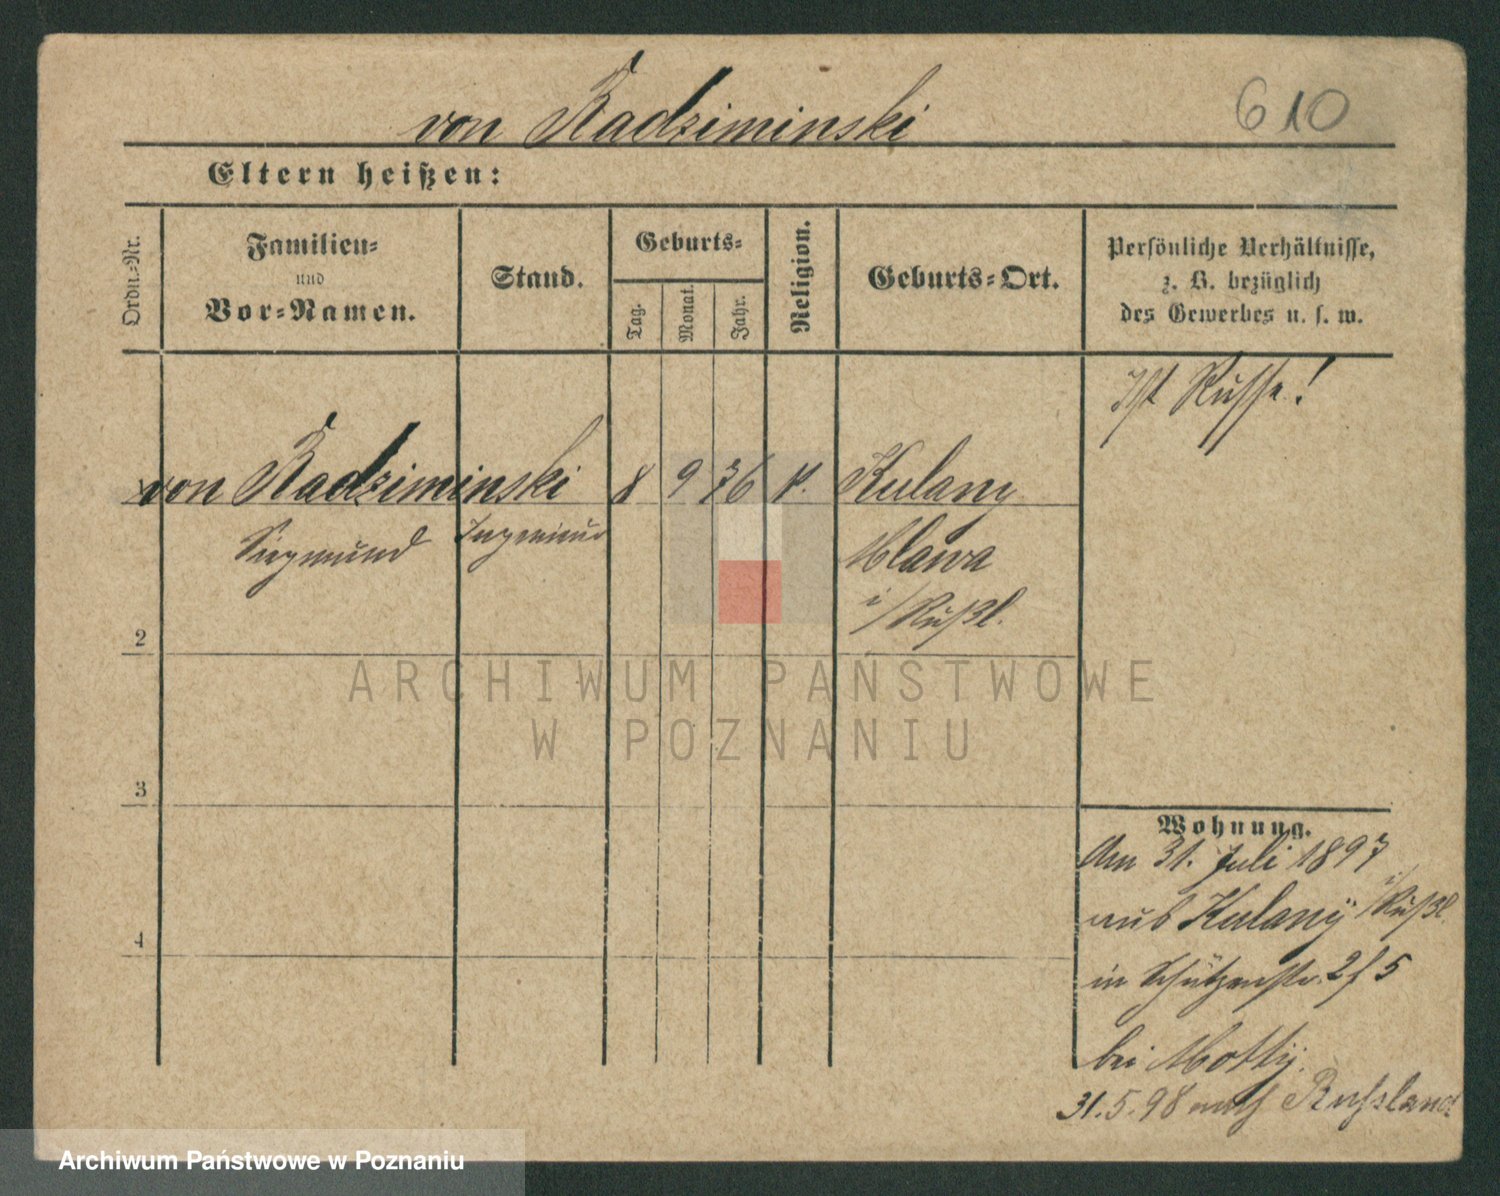 von Radziminski
610
Eltern heißen:
Ordn.-Nr.
Familien-
und
Vor-Namen.
Stand.
Geburts-
Tag.
Monat.
Jahr.
Religion.
Geburts-Ort.
Persönliche Verhältnisse,
z. B. bezüglich
des Gewerbes u. s. w.
Ist Russe!
von Radziminski 8 9 76 k. Kulany
Siegmund Ingenieur Mlawa
i/Rußl.
2
3
4
Wohnung.
Am 31. Juli 1897
aus Kulany i/Rußl.
in Schützenstr. 2f 5
bei Motty.
31.5.98 nach Russland
ARCHIWUM PAŃSTWOWE
W POZNANIU
Archiwum Państwowe w Poznaniu